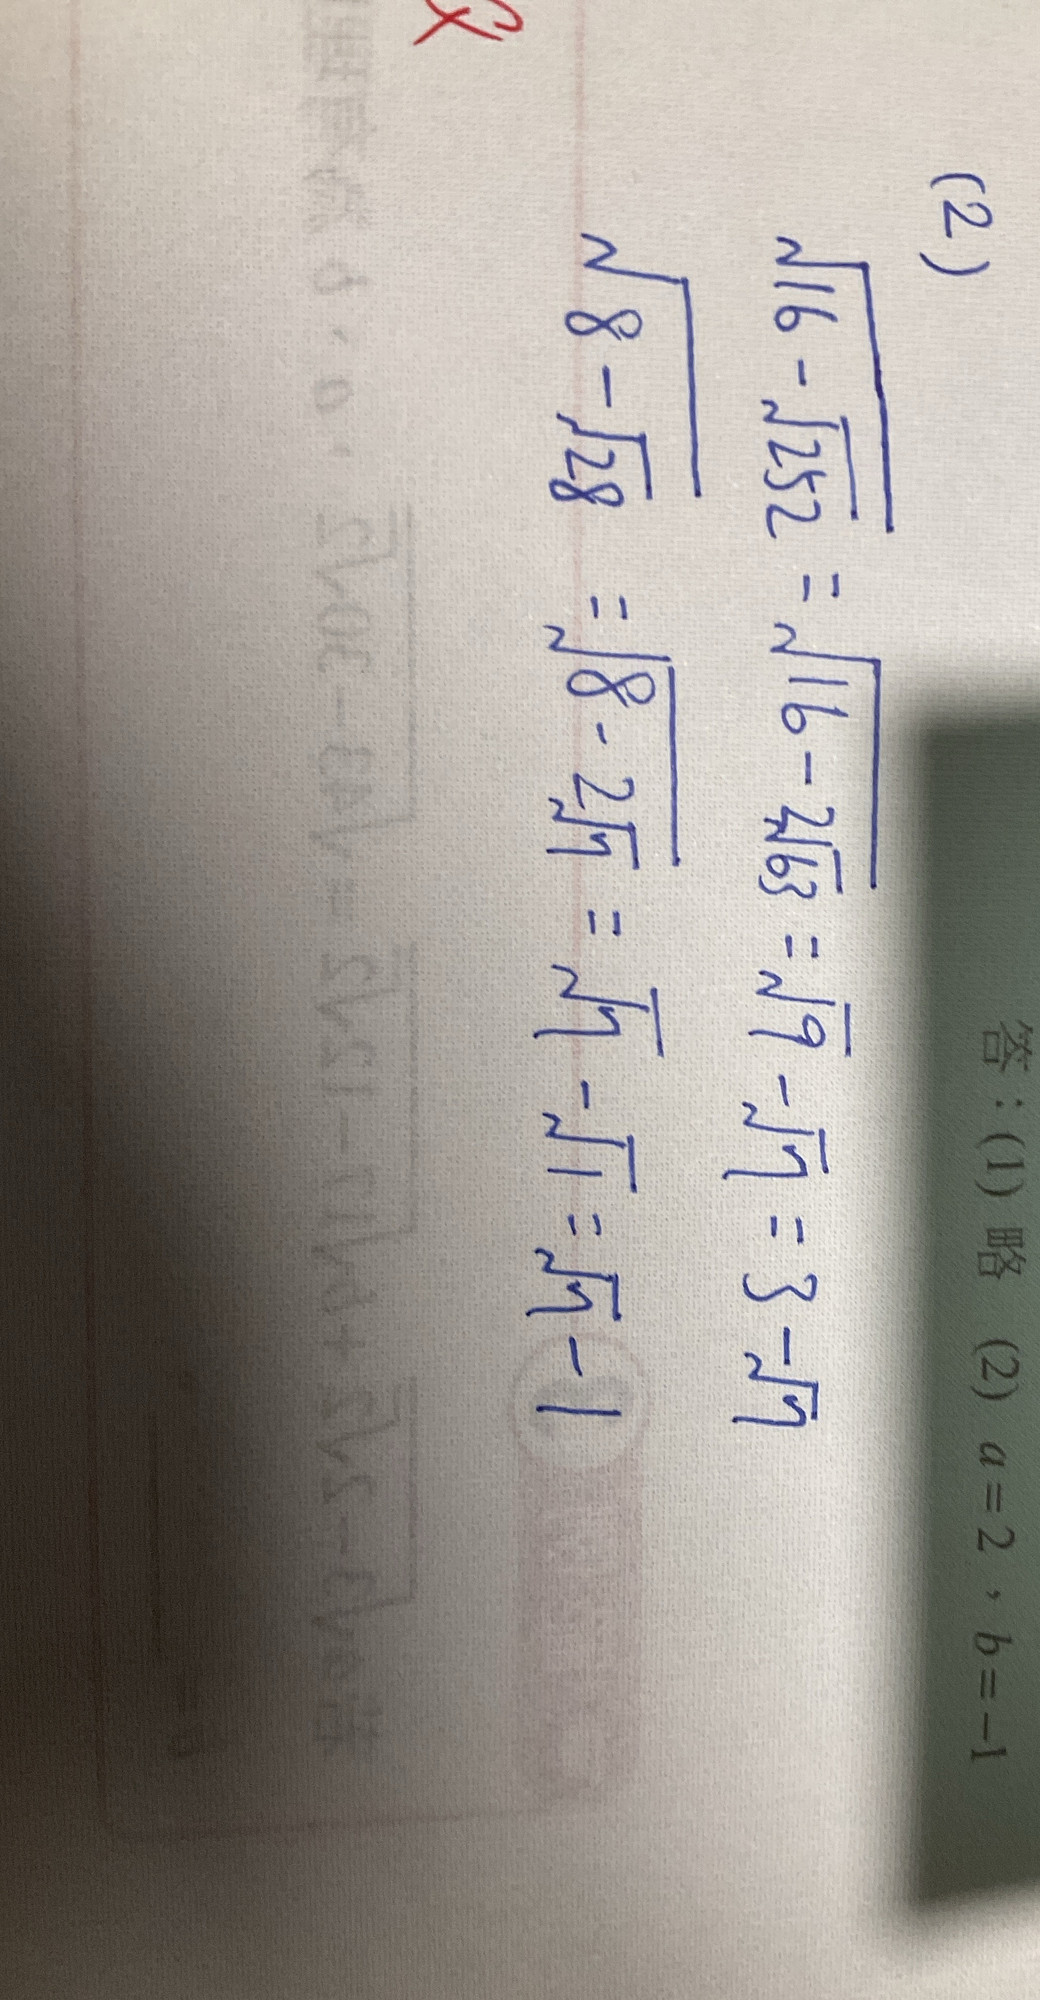 答：(1) 略 (2) a = 2，b = −1
(2)
√(16 - √252) = √(16 - 2√63) = √9 - √7 = 3 - √7
√(8 - √28) = √(8 - 2√7) = √7 - √1 = √7 - 1